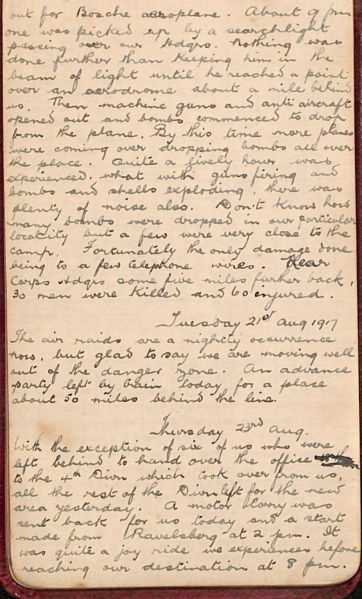 out for Bosche aeroplane. About 9 pm
one was picked up by a searchlight
passing over our Hdqrs. Nothing was
done further than keeping him in the
beam of light until he reached a point
over an aerodrome about a mile behind
us. Then machine guns and anti aircraft
opened out and bombs commenced to drop
from the plane. By this time more planes
were coming over dropping bombs all over
the place. Quite a lively hour was
experienced, what with guns firing and
bombs and shells exploding, there was
plenty of noise also. Don't know how
many bombs were dropped in our particular
locality but a few were very close to the
camp. Fortunately the only damage done
being to a few telephone wires. Near
Corps Hdqrs some five miles further back,
30 men were killed and 60 injured.
Tuesday 21st Aug 1917
The air raids are a nightly occurrence
now, but glad to say we are moving well
out of the danger zone. An advance
party left by train today for a place
about 50 miles behind the line.
Thursday 23rd Aug.
With the exception of six of us who were
left behind to hand over the office
to the 4th Divn which took over from us,
all the rest of the Divn left for the new
area yesterday. A motor lorry was
sent back for us today and a start
made from Ravelsberg at 2 pm. It
was quite a joy ride we experienced before
reaching our destination at 8 pm.